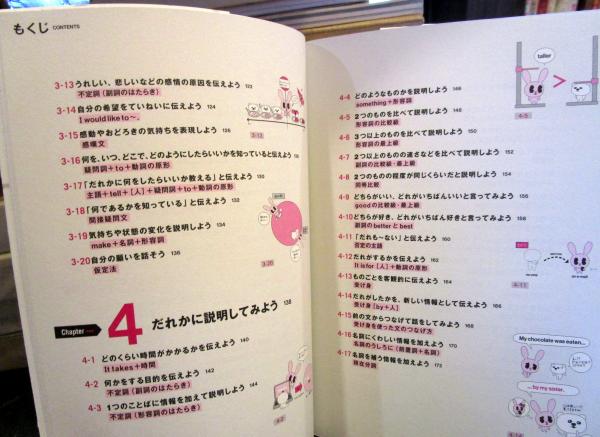 もくじ CONTENTS
3-13 うれしい、悲しいなどの感情の原因を伝えよう 122
不定詞(副詞のはたらき)
3-14 自分の希望をていねいに伝えよう 124
I would like to〜.
3-15 感動やおどろきの気持ちを表現しよう 126
感嘆文
3-16 何を、いつ、どこで、どのようにしたらいいかを知っていると伝えよう
疑問詞+to+動詞の原形
3-17 「だれかに何をしたらいいか教える」と伝えよう 130
主語+tell+[人]+疑問詞+to+動詞の原形
3-18 「何であるかを知っている」と伝えよう 132
間接疑問文
3-19 気持ちや状態の変化を説明しよう 134
make+名詞+形容詞
3-20 自分の願いを話そう 136
仮定法
3-13
3-20
Chapter 4 だれかに説明してみよう 138
4-1 どのくらい時間がかかるかを伝えよう 140
It takes+時間
4-2 何かをする目的を伝えよう 142
不定詞(副詞のはたらき)
4-3 1つのことばに情報を加えて説明しよう 144
不定詞(形容詞のはたらき)
4-2
4-4 どのようなものかを説明しよう 146
something+形容詞
4-5 2つのものを比べて説明しよう 148
形容詞の比較級
4-6 3つ以上のものを比べて説明しよう 150
形容詞の最上級
4-7 2つ以上のものの速さなどを比べて説明しよう 152
副詞の比較級・最上級
4-8 2つのものの程度が同じくらいだと話そう 154
同等比較
4-9 どちらがいい、どれがいちばんいいと言ってみよう 156
goodの比較級・最上級
4-10 どちらが好き、どれがいちばん好きと言ってみよう 158
副詞のbetterとbest
4-11 「だれも〜ない」と伝えよう 160
否定の主語
4-12 だれがするかを伝えよう 162
It is for [人]+to+動詞の原形
4-13 ものごとを客観的に伝えよう 164
受け身
4-14 だれがしたかを、新しい情報として伝えよう 166
受け身[by+人]
4-15 前の文からつなげて話をしてみよう 168
受け身を使った文のつなげ方
4-16 名詞にくわしい情報を加えよう 170
名詞のうしろに(前置詞+名詞)
4-17 名詞を補う情報を加えよう 172
現在分詞
taller
4-5
4-11
My chocolate was eaten...
...by my sister.
4-14